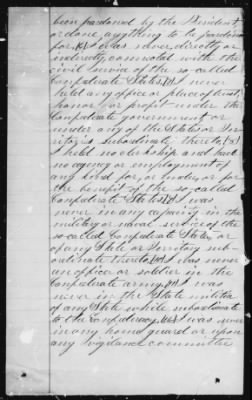 been pardoned by the President,
or done anything to be pardoned
for, I was never directly or
indirectly connected with the
civil service of the so-called
Confederate States, I never
held any office or place of trust,
honor or profit under the
Confederate government or
under any of the States or Ter
ritories subordinate thereto,
I held no clerkship and had
no agency or employment of
any kind for, or under, or for
the benefit of the so-called
Confederate States, I was
never in any capacity in the
military or naval service of the
so-called Confederate States, or
of any State or Territory sub-
ordinate thereto, I was never
an officer or soldier in the
Confederate army, I was
never in the State militia
of any State while subordinate
to the Confederacy, I was never
in any home guard or upon
any vigilance committee